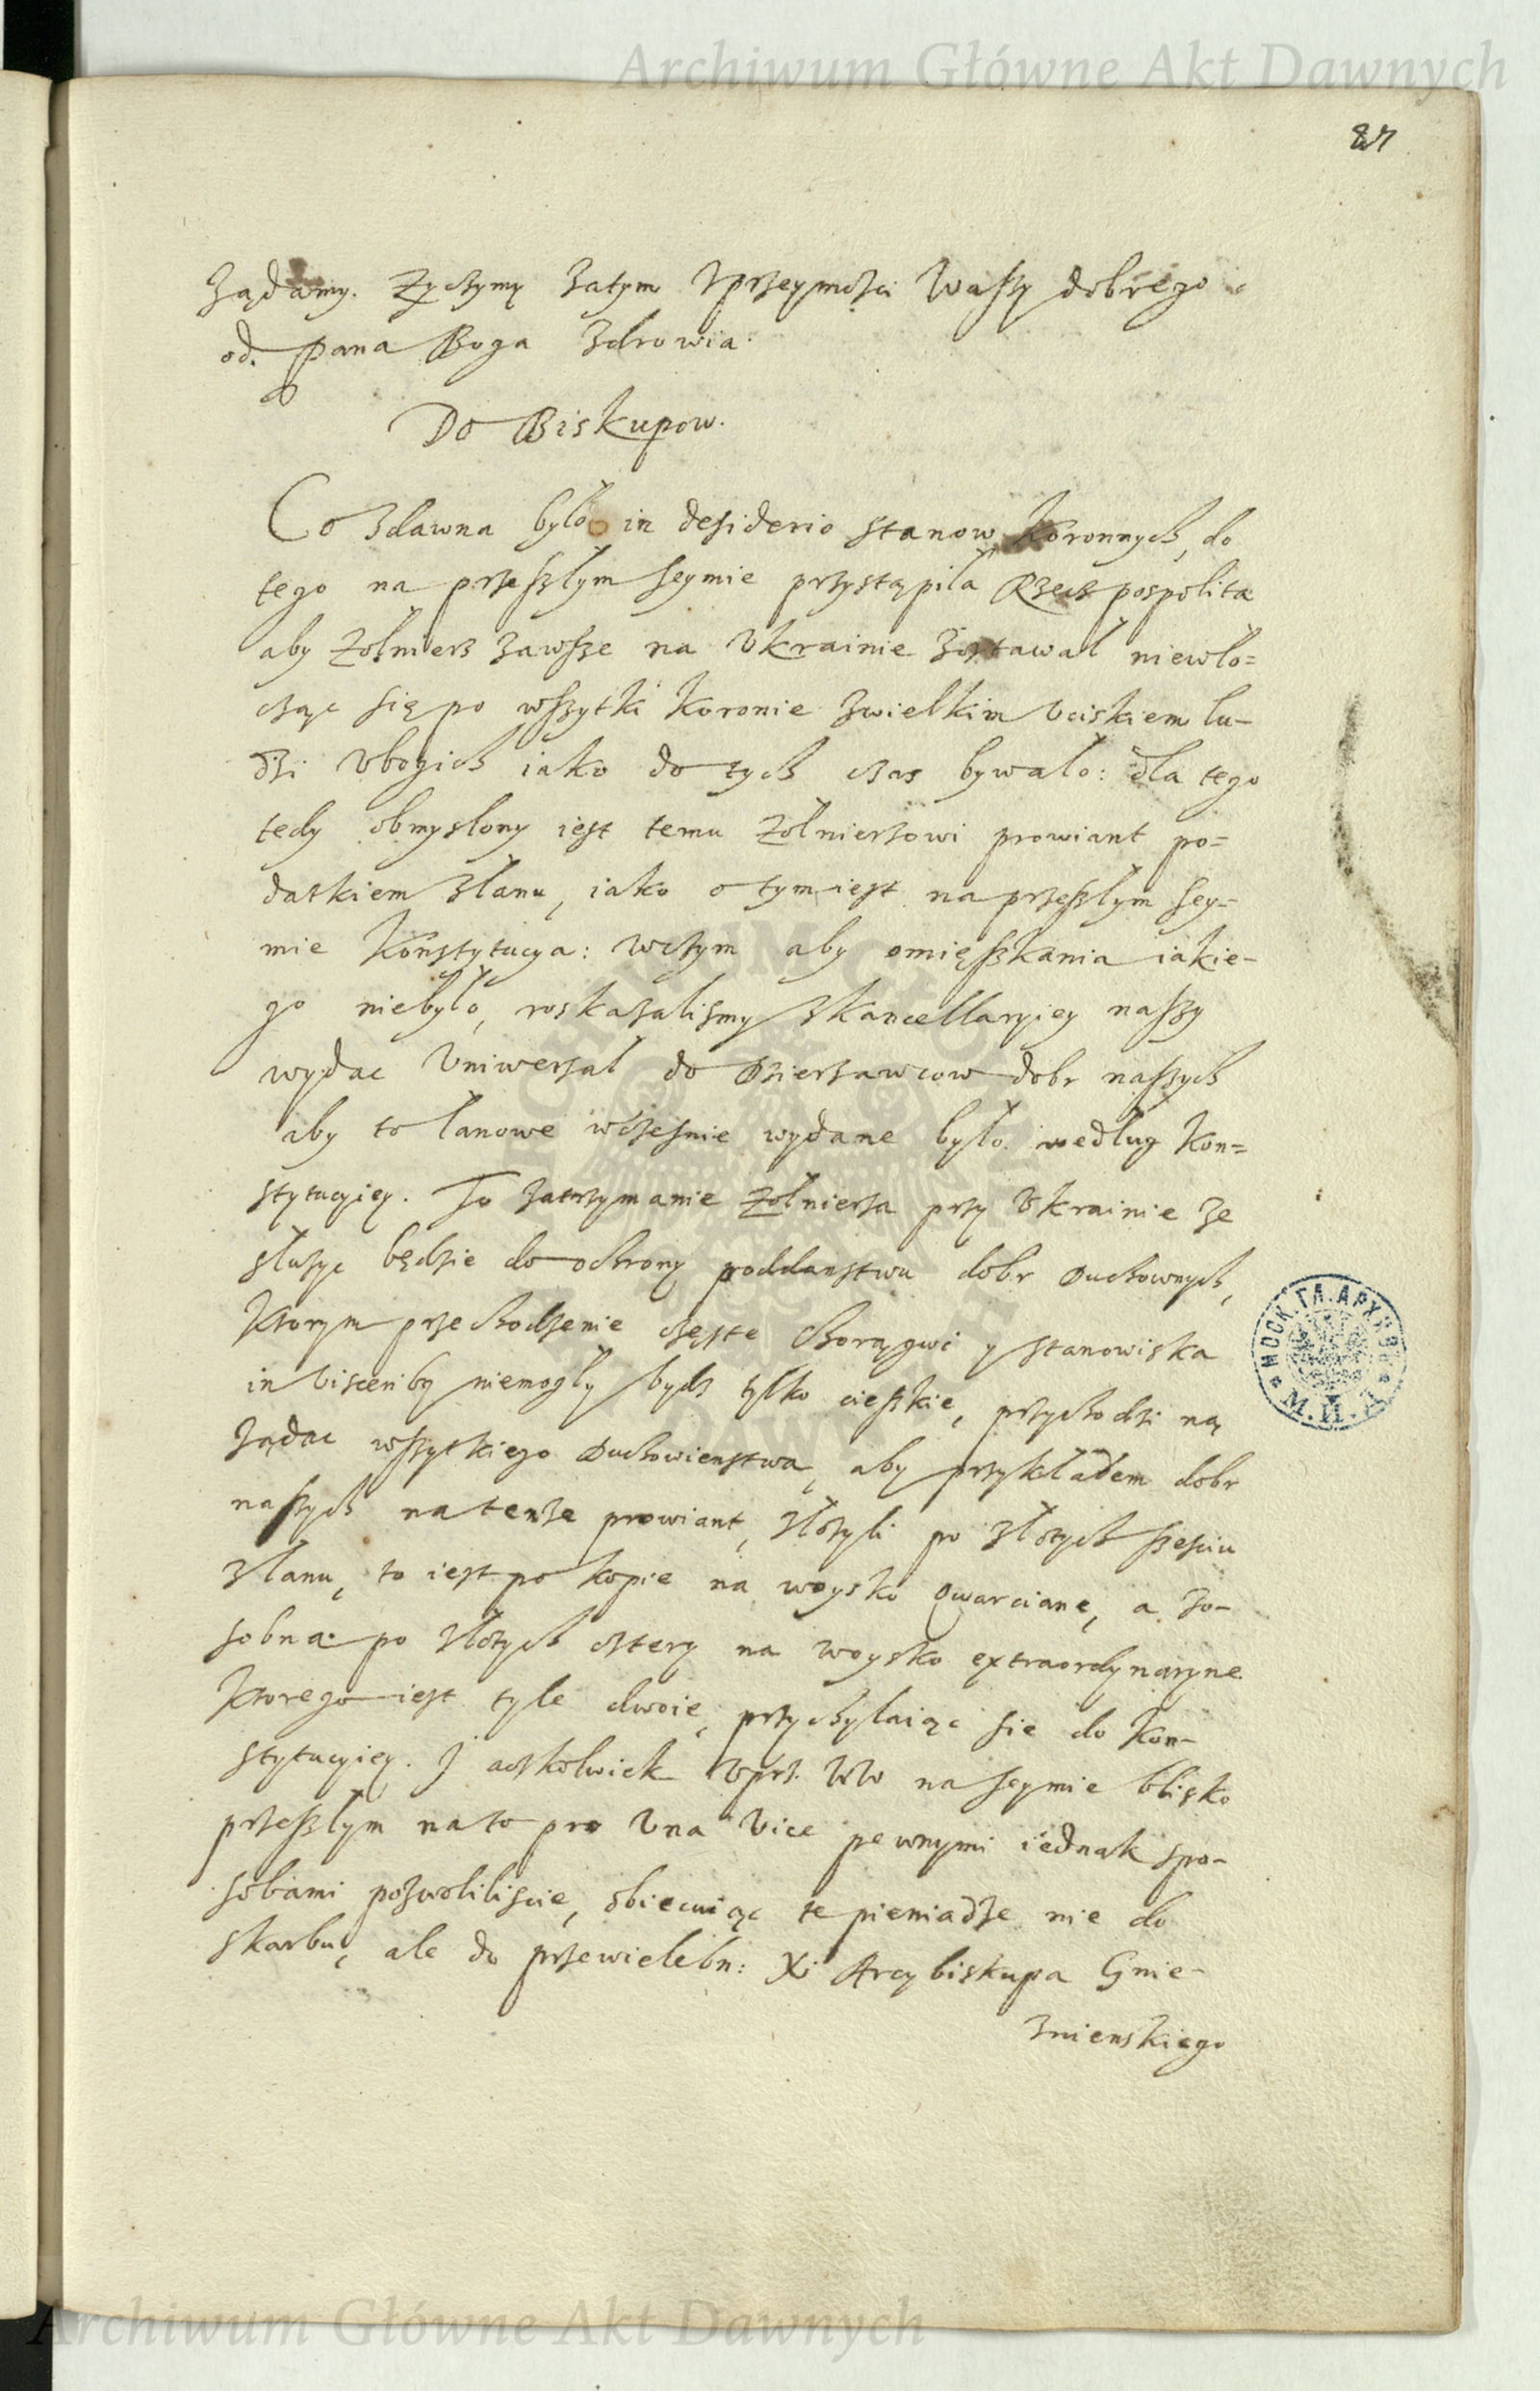 Archiwum Główne Akt Dawnych
87
żądamy. Zyczymy zatym Vprzeymości Waszy dobrego
od Pana Boga zdrowia.
Do Biskupow.
Co zdawna było in desiderio stanow Koronnych, do
tego na przeszłym seymie przystąpiła Rzeczpospolita
aby żołnierz zawsze na Vkrainie zostawał niewło=
cząc się po wszytki Koronie zwielkim vciskiem lu-
dzi vbogich iako do tych czas bywało: dla tego
tedy obmyslony iest temu żołnierzowi prowiant po=
datkiem złanu, iako o tym iest na przeszłym sey-
mie Konstytucya: wczym aby omięszkania iakie-
go niebyło, roskazalismy zkancellaryiey naszy
wydac Vniwersał do Dzierzawcow dobr naszych
aby to łanowe wczesnie wydane było według Kon=
stytucyiey. To zatrzymanie żołnierza przy Vkrainie że
służyc będzie do ochrony poddanstwu dobr Duchownych,
Ktorym przechodzenie częste chorągwi y stanowiska
in visceribq niemogły bydz tylko cieszkie, przychodzi ną
żądac wszytkiego Duchowienstwa, aby przykładem dobr
naszych na tenże prowiant, złożyli po złotych sześciu
złanu, to iest po kopie na woysko qwarciane, a zo-
sobna po złotych cztery na woysko extraordynaryne
Ktorego iest tyle dwoie, przychylaiąc sie do Kon-
stytucyiey. J aczkolwiek Vprz. WW na seymie blisko
przeszłym na to pro Vna Vice pewnymi iednak spo-
sobami pozwoliliscie, obiecuiąc te pieniądze nie do
skarbu, ale do przewielebn: Xi Arcybiskupa Gnie-
znienskiego
МОСК. ГЛ. АРХИВЪ
М. И. Д.
Archiwum Główne Akt Dawnych